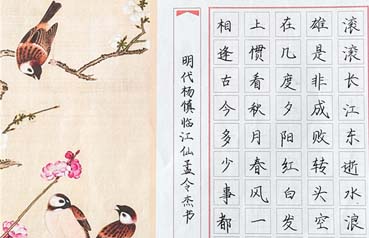 滚滚长江东逝水浪
雄是非成败转头空
在几度夕阳红白发
上惯看秋月春风一
相逢古今多少事都
明代杨慎临江仙孟令杰书